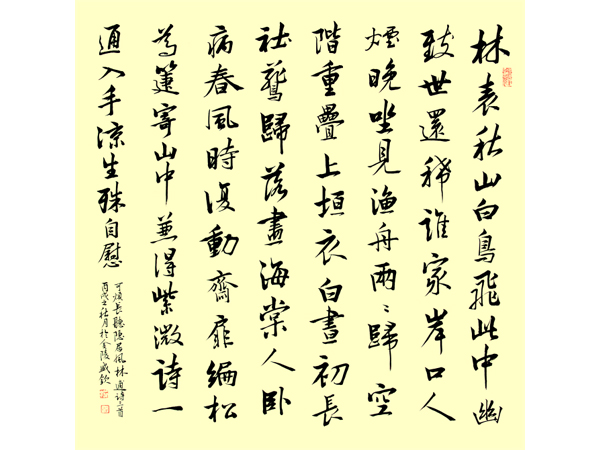 林表秋山白鳥飛此中幽
致世還稀誰家岸口人
煙晚坐見漁舟兩〻歸空
階重疊上垣衣白晝初長
社鷰歸落盡海棠人卧
病春風時復動齋扉編松
為箑寄山中兼得紫微詩一
通入手涼生殊自慰
可煩長聽隱居風林逋詩三首
丙戌之秋月於金陵盛欽